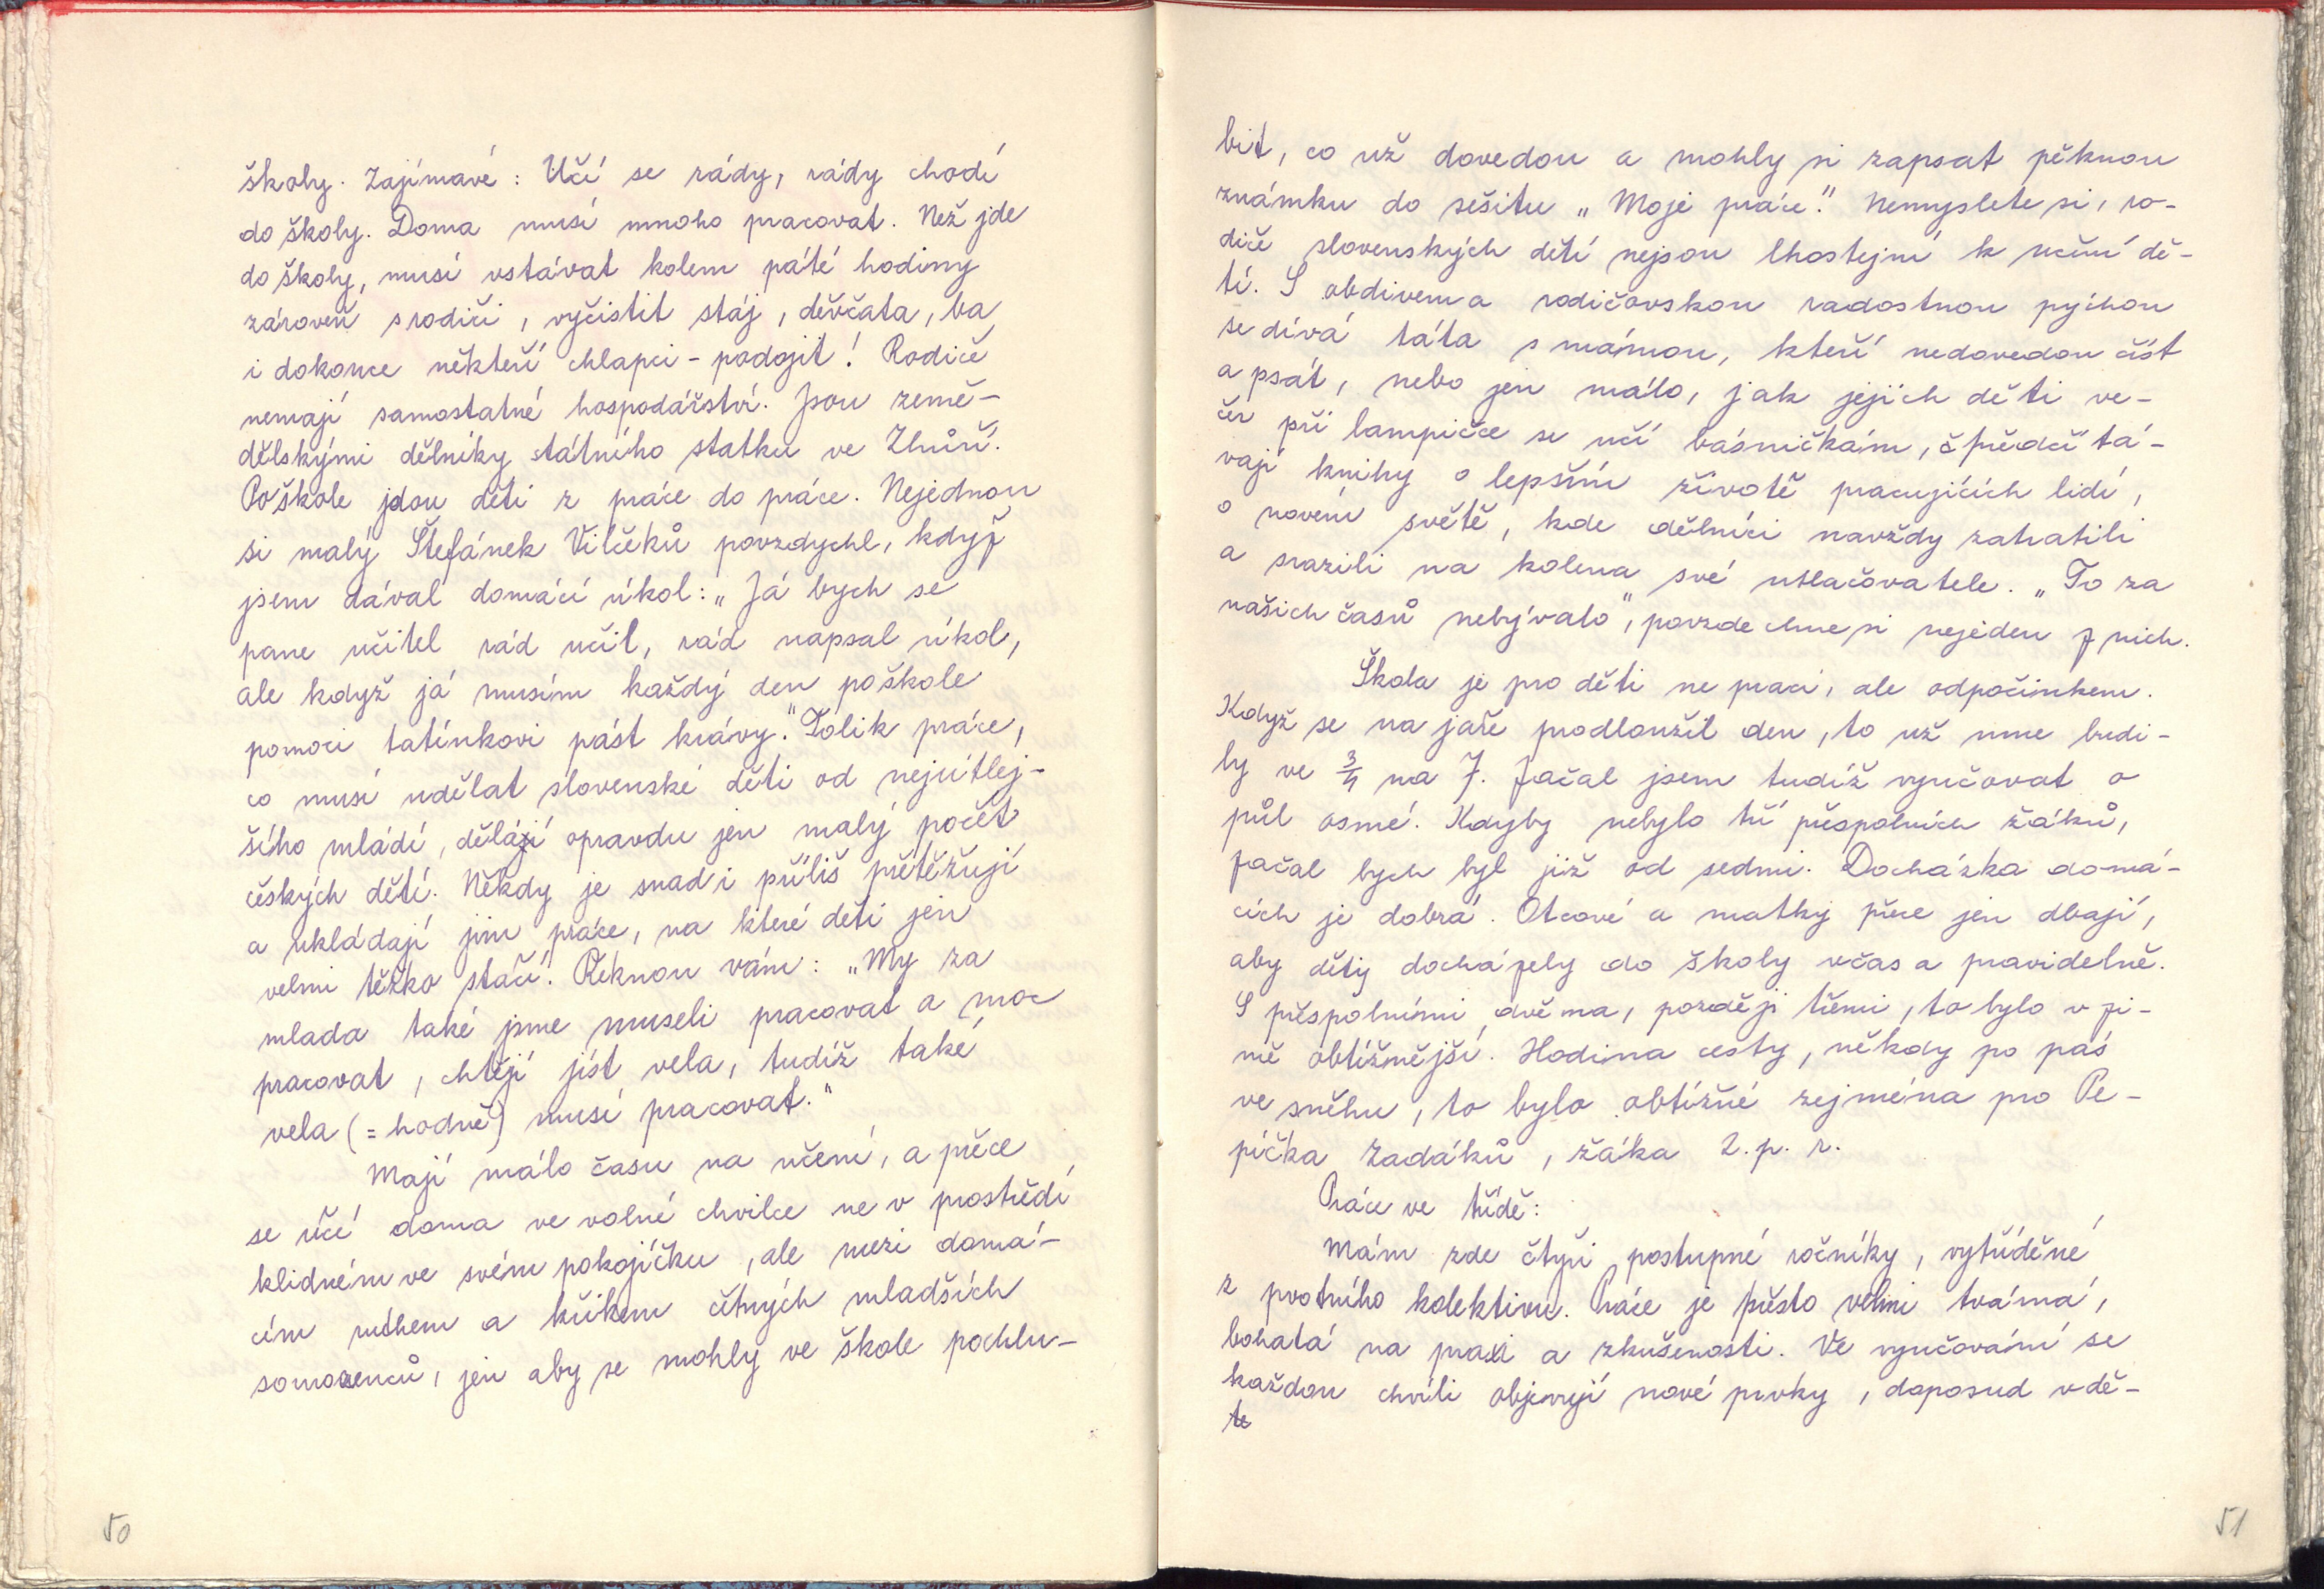 školy. Zajímavé: Učí se rády, rády chodí
do školy. Doma musí mnoho pracovat. Než jde
do školy, musí vstávat kolem páté hodiny
zároveň s rodiči, vyčistit stáj, děvčata, ba
i dokonce někteří chlapci - podojit! Rodiče
nemají samostatné hospodářství. Jsou země-
dělskými dělníky státního statku ve Zhůří.
Po škole jdou děti z práce do práce. Nejednou
si malý Štefánek Vilčeků povzdychl, když
jsem dával domácí úkol: „Já bych se
pane učitel rád učil, rád napsal úkol,
ale když já musím každý den po škole
pomoci tatínkovi pást krávy." Tolik práce,
co musí udělat slovenské děti od nejútlej-
šího mládí, dělají opravdu jen malý počet
českých dětí. Někdy je snad i příliš přetěžují
a ukládají jim práce, na které děti jen
velmi těžko stačí. Řeknou vám: „My za
mlada také jsme museli pracovat a moc
pracovat, chtějí jíst vela, tudíž také
vela (= hodně) musí pracovat."
Mají málo času na učení, a přece
se učí doma ve volné chvilce ne v prostředí
klidném ve svém pokojíčku, ale mezi domá-
cím ruchem a křikem četných mladších
sourozenců, jen aby se mohly ve škole pochlu-
50
bit, co už dovedou a mohly si zapsat pěknou
známku do sešitu „Moje práce". Nemyslete si, ro-
diče slovenských dětí nejsou lhostejní k učení dě-
tí. S obdivem a rodičovskou radostnou pýchou
se dívá táta s mámou, kteří nedovedou číst
a psát, nebo jen málo, jak jejich děti ve-
čer při lampičce se učí básničkám, č předčítá-
vají knihy o lepším životě pracujících lidí,
o novém světě, kde dělníci navždy zahatili
a srazili na kolena své utlačovatele. „To za
našich časů nebývalo", povzdechne si nejeden z nich.
Škola je pro děti ne prací, ale odpočinkem.
Když se na jaře prodloužil den, to už mne budi-
ly ve 3/4 na 7. Začal jsem tudíž vyučovat o
půl osmé. Kdyby nebylo tří přespolních žáků,
začal bych byl již od sedmi. Docházka domá-
cích je dobrá. Otcové a matky přece jen dbají,
aby děti docházely do školy včas a pravidelně.
S přespolními dvěma, později třemi, to bylo v zi-
mě obtížnější. Hodina cesty, někdy po pás
ve sněhu, to bylo obtížné zejména pro Pe-
píčka Zadáků, žáka 2. p. r.
Práce ve třídě:
Mám zde čtyři postupné ročníky, vytříděné
z prvotního kolektivu. Práce je přesto velmi tvárná,
bohatá na praxi a zkušenosti. Ve vyučování se
každou chvíli objevují nové prvky, doposud v dě-
te
51